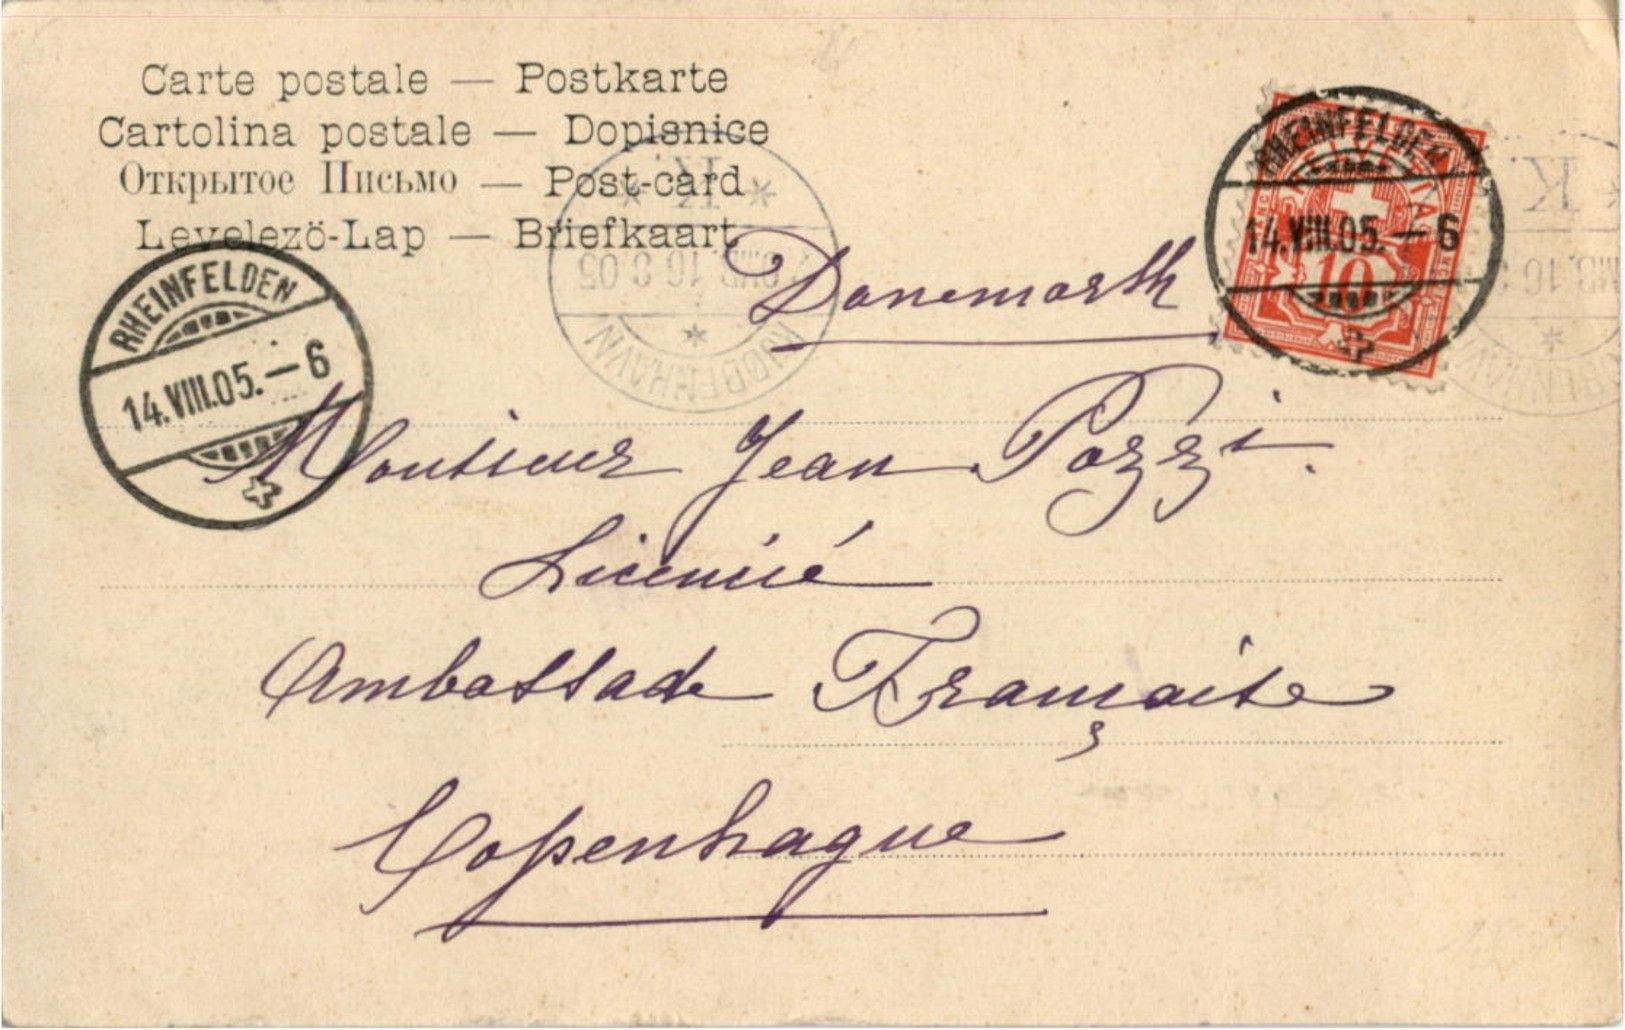 Carte postale — Postkarte
Cartolina postale — Dopisnice
Открытое Письмо — Post-card
Levelezö-Lap — Briefkaart
RHEINFELDEN
14.VIII.05. — 6
HELVETIA
10
RHEINFELDEN
14.VIII.05. — 6
* K. *
OMB. 16 8 05
KJØBENHAVN
K.
OMB. 16 8
KJØBENHAVN
Danemark
Monsieur Jean Pozzi.
Licencié
Ambassade Française
Copenhague